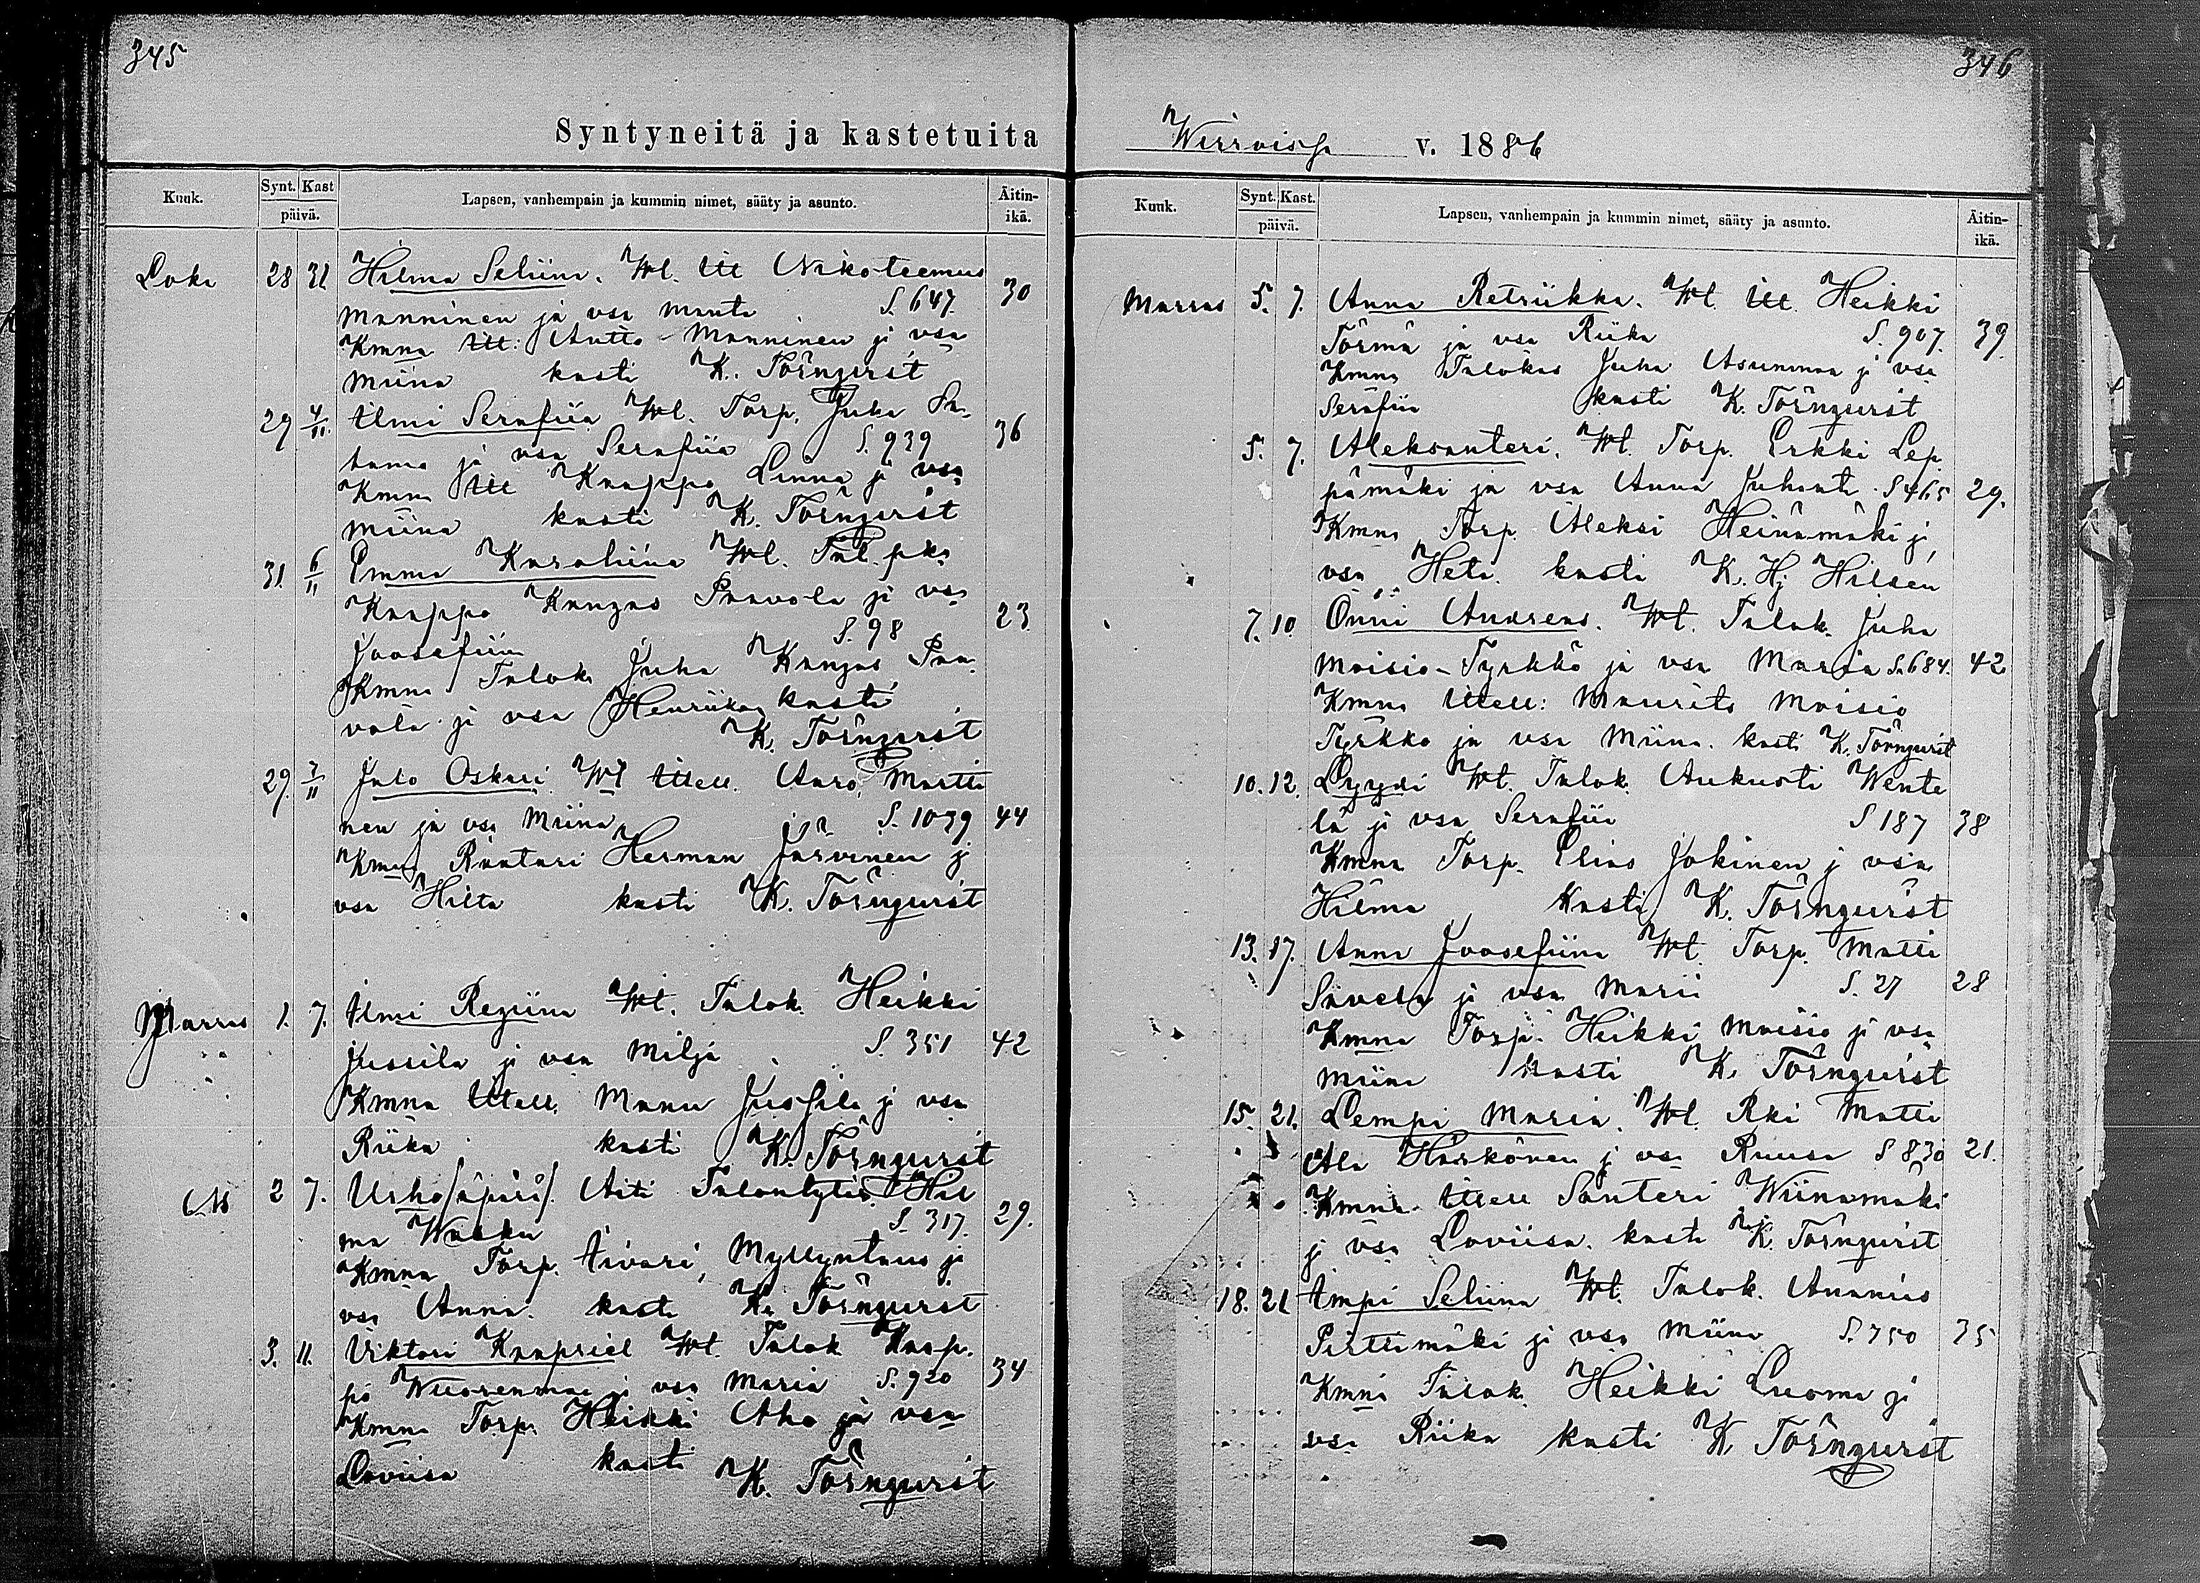 345
Syntyneitä ja kastetuita
Kuuk. Synt. Kast päivä. Lapsen, vanhempain ja kummin nimet, sääty ja asunto. Äitin-ikä.
Loka 28 31 Hilma Seliina. Wl. Itt Nikoteemus
Manninen ja vsa Manta S. 647. 30
Kmna Itt: Antto Manninen j vsa
Miina kasti K. Törnqvist
29 4/11. Ilmi Serafiia Wl. Torp. Juha Sa-
tama ja vsa Serafiia S. 939 36
Kmna Itt Kaappo Linna j vsa
Miina kasti K. Törnqvist
31 6/11 Emma Karoliina Wl. Tal. pka
Kaappo Kangas Paavola ji vsa
Joosefiina S. 98 23
Kmna Talok. Juha Kangas Paa-
vola ji vsa Henriika kasti
K. Törnqvist
29. 7/11 Jalo Oskari Wl Itell. Aaro Martti
nen ja vsa Miina S. 1039 44
Kmna Räätäri Herman Järvinen j
vsa Hilta kasti K. Törnqvist
Marras 1. 7. Ilmi Regiina Wl. Talok. Heikki
Jussila ji vsa Milja S. 351 42
Kmna Itell. Manu Jussila j vsa
Riika kasti K. Törnqvist
M 2 7. Urho /äpärä/. Äiti Talontytär Hil
ma Wasku S. 317. 29.
Kmna Torp. Iivari Myllyntaus ji
vsa Anna. kasti K. Törnqvist
3. 11. Viktori Kaapriel Wl. Talok Kaap-
po Wuorenmaa ji vsa Maria S. 920 34
Kmna Torp. Heikki Aho ja vsa
Loviisa kasti
K. Törnqvist
346
Wirroissa v. 1886
Kuuk. Synt. Kast. päivä. Lapsen, vanhempain ja kummin nimet, sääty ja asunto. Äitin-ikä.
Marras 5. 7. Anna Retriikka. Wl. Itt. Heikki
Törmä ja vsa Riika S. 907. 39
Kmna Talokas Juha Asunmaa j vsa
Serafiia kasti K. Törnqvist
5. 7. Aleksanteri. Wl. Torp. Erkki Lep
pämäki ja vsa Anna Juhanta. S 465 29.
Kmna Torp Aleksi Heinämäki j,
vsa Heta. kasti K. Hj Hilsen
7. 10. Onni Andreas. Wl. Talok. Juha
Moisio-Tyrkkö ja vsa Maria S. 684. 42
Kmna Itell: Maurits Moisio
Tyrkkö ja vsa Miina. kasti K. Törnqvist
10. 12. Lyyti Wl. Talok. Aukusti Wente
lä ji vsa Serafiia S 187 38
Kmna Torp. Elias Jokinen j vsa
Hilma Kasti K. Törnqvist
13. 17. Anna Joosefiina Wl. Torp. Matti
Sävelä ji vsa Maria S. 27 28
Kmna Torp. Heikki Moisio ji vsa
Miina kasti K. Törnqvist
15. 21. Lempi Maria. Wl. Rki Matti
Ala Härkönen j vsa Ruusa S 830 21.
Kmna Itell Santeri Wiinamäki
j vsa Loviisa. kasti K. Törnqvist
18. 21 Impi Seliina Wl. Talok. Ananias
Pirttimäki ji vsa Miina S. 750 35
Kmna Talok. Heikki Luoma ji
vsa Riika kasti K. Törnqvist